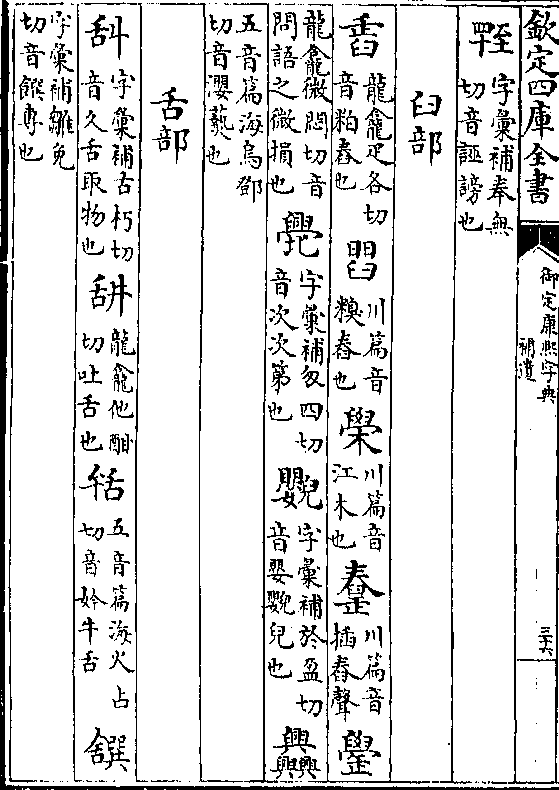 欽定四庫全書
御定康熙字典
補遺
字彙補奉無
切音誣謗也
臼部
龍龕疋各切
音粕舂也
川篇音
糗舂也
川篇音
江木也
川篇音
插舂聲
龍龕微悶切音
問語之微損也
字彙補匆四切
音次次第也
字彙補於盈切
音嬰 兒也
五音篇海烏鄧
切音瀴藝也
舌部
字彙補古朽切
音久舌取物也
龍龕他酣
切吐舌也
五音篇海火占
切音妗牛舌
字彙補雛免
切音饌專也